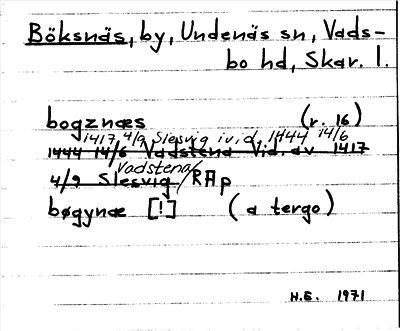 Böksnäs, by, Undenäs sn, Vads-
bo hd, Skar. l.
bogznæs (r. 16)
1417 4/9 Slesvig i vid. 1444 14/6
1444 14/6 Vadstena Vid. av 1417
Vadstena
4/9 Slesvig / RAp
bøgynæ [!] (a tergo)
H.E. 1971